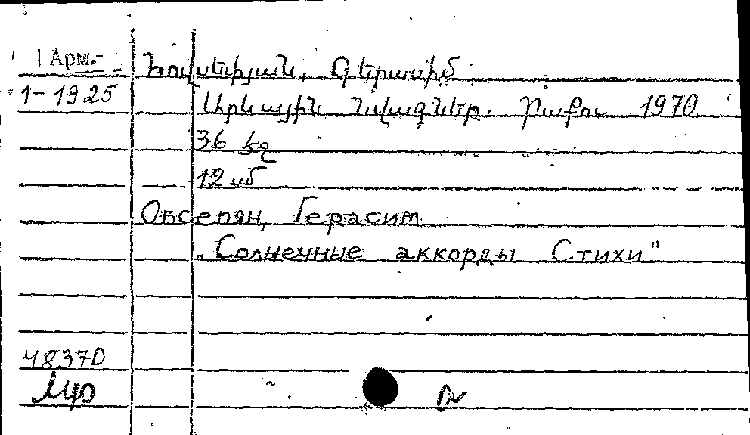 Арм.-
Հովսեփյան, Գերասիմ
1-1925
Արևային նվագներ. Բաքու 1970
36 էջ
12 սմ
Овсепян, Герасим
"Солнечные аккорды Стихи"
48370